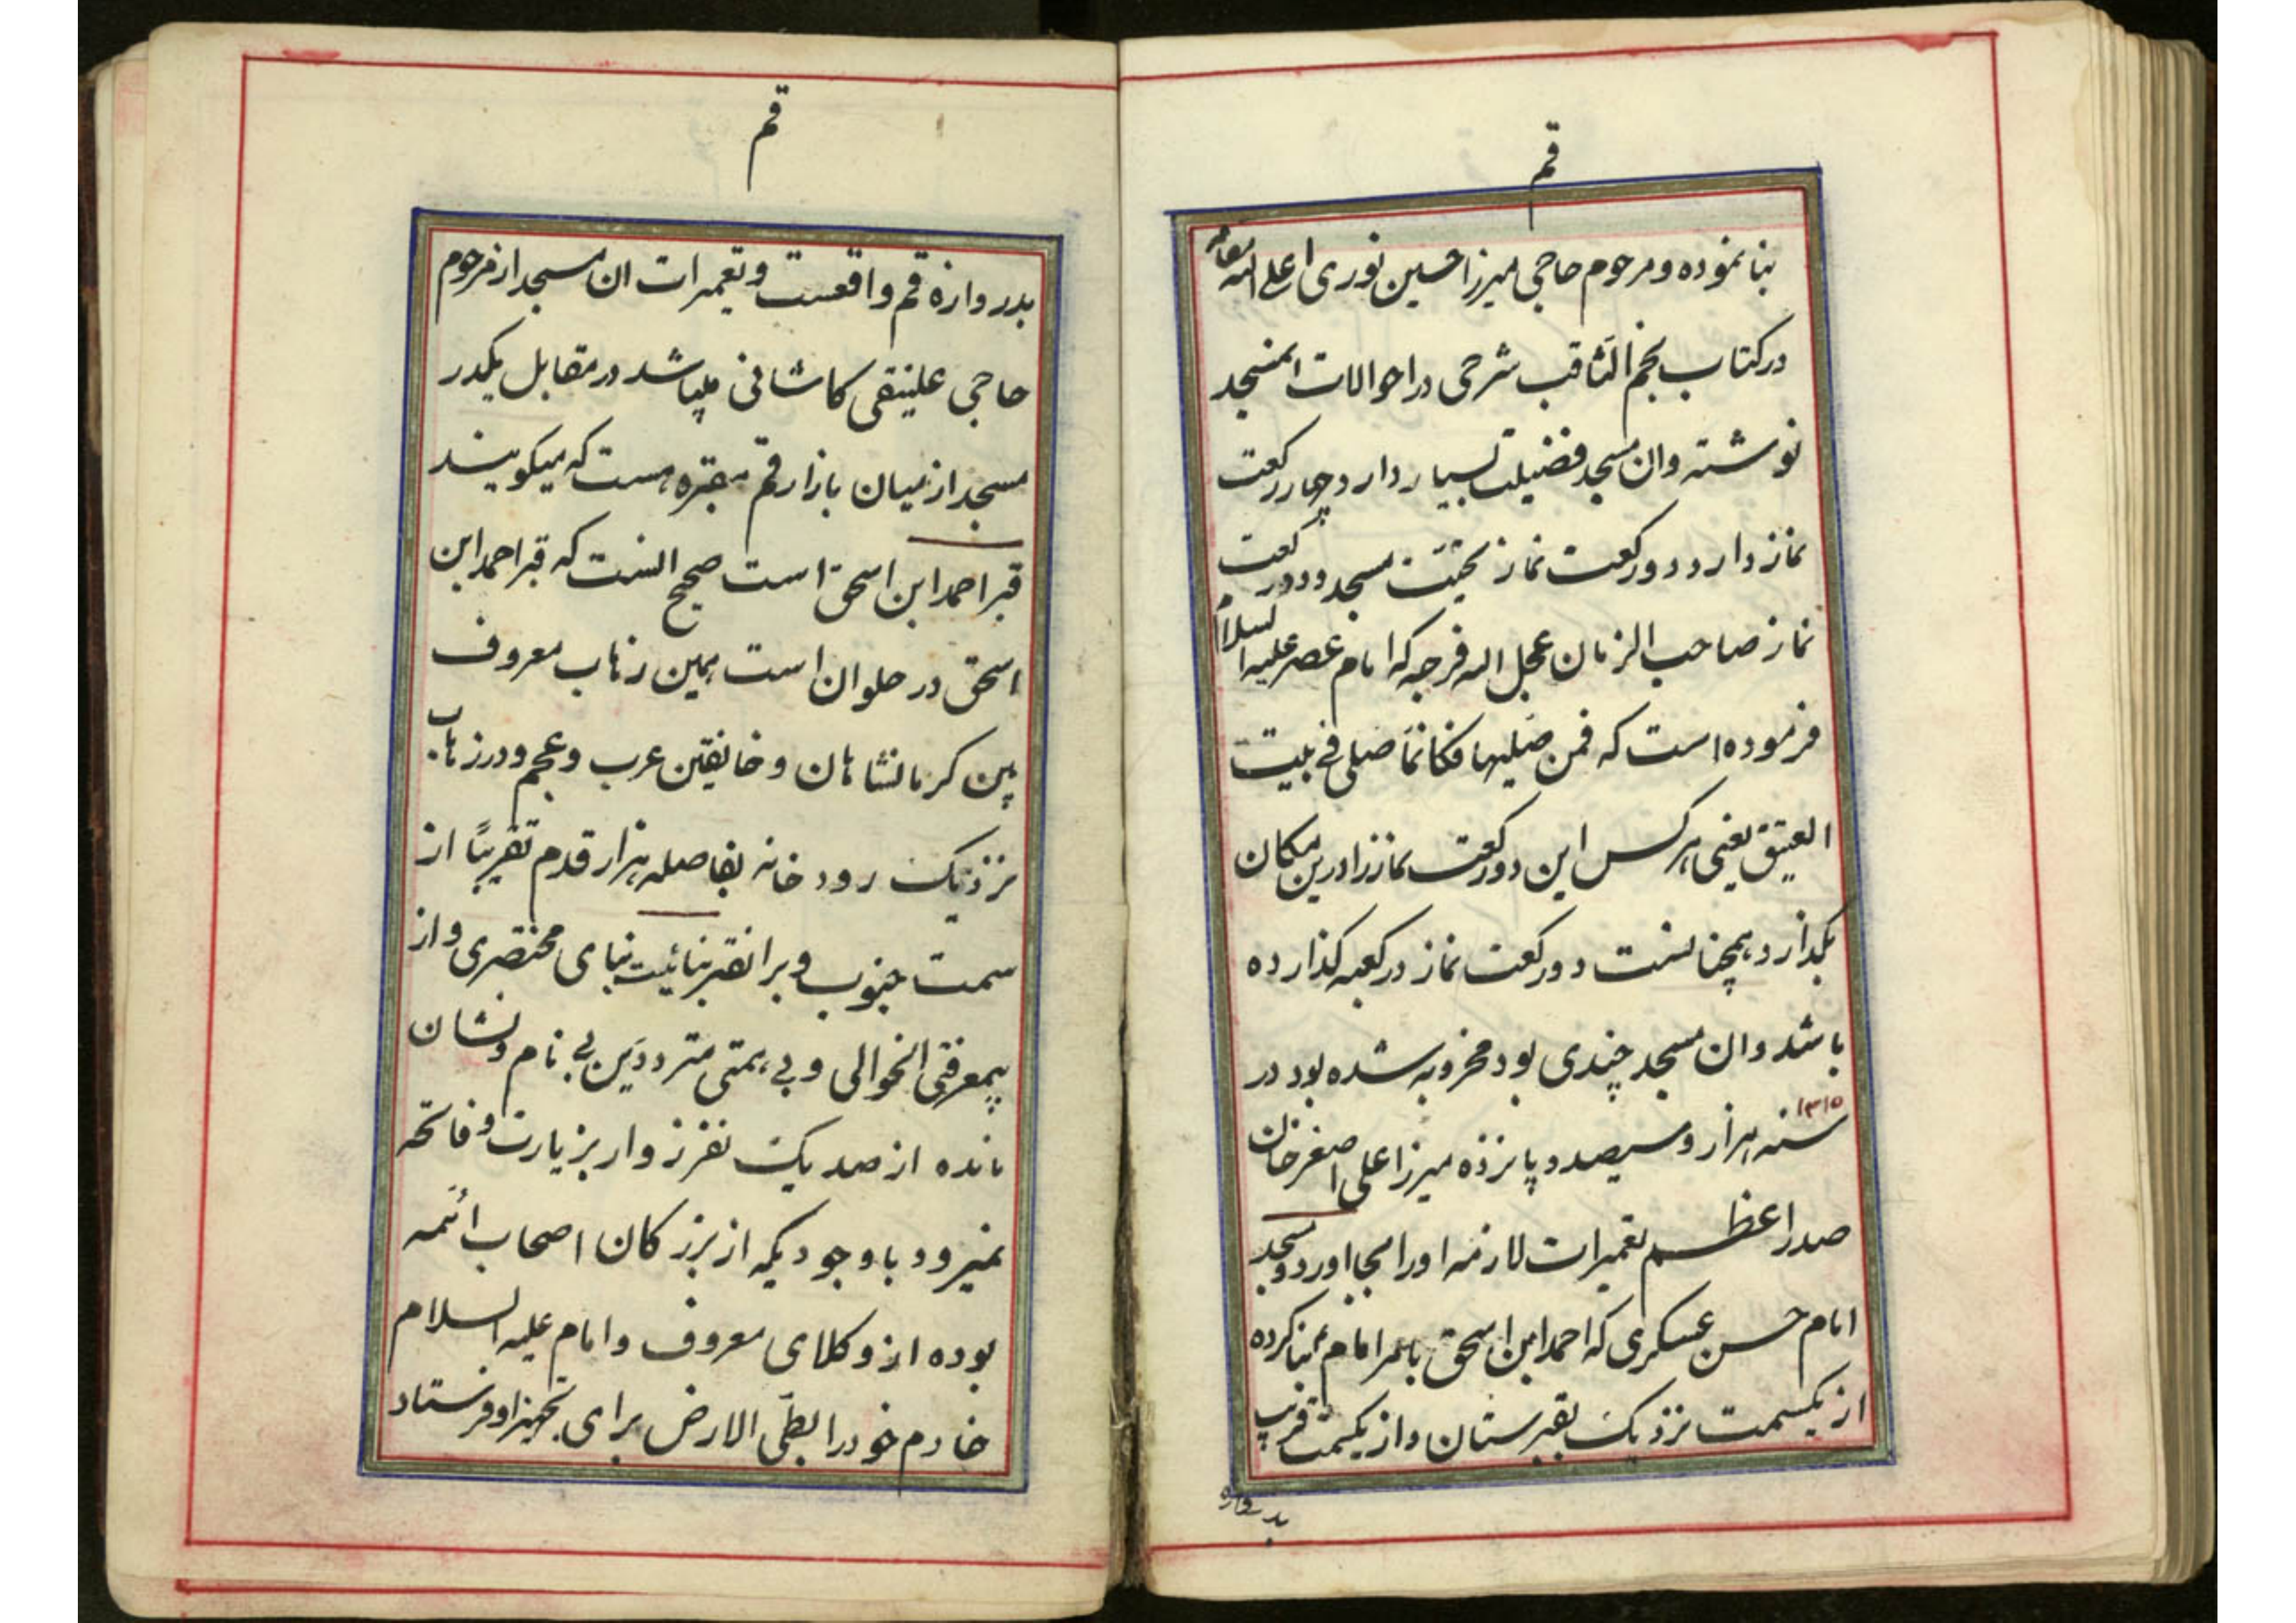 قم
بنا نموده و مرحوم حاجی میرزا حسین نوری اعلی الله مقامه
در کتاب نجم الثاقب شرحی در احوالات انمسجد
نوشته وان مسجد فضیلت بسیار دارد چهار رکعت
نماز دارد دو رکعت نماز تحیّت مسجد و دو رکعت
نماز صاحب الزمان عجل اله فرجه که امام عصر علیه السلام
فرموده است که فمن صلیها فکانمّا صلی فی بیت
العتیق یعنی هر کس این دو رکعت نماز را درین مکان
بکذارد همچنانست دو رکعت نماز در کعبه کذارده
باشد وان مسجد چندی بود مخروبه شده بود در
۱۳۱۵
سنه هزار و سیصد و پانزده میرزا علی اصغر خان
صدر اعظم تعمیرات لازمه اورا بجا اورد و مسجد
امام حسن عسکری که احمد ابن اسحق بامر امام بنا کرده
از یکسمت نزدیک بقبرستان و از یکسمت قریب
بدروازه
قم
بدروازه قم واقعست و تعمیرات ان مسجد از مرحوم
حاجی علینقی کاشانی میباشد در مقابل یکدر
مسجد از میان بازار قم مقبره هست که میکویند
قبر احمد ابن اسحق است صحیح انست که قبر احمد ابن
اسحق در حلوان است همین زهاب معروف
بین کرمانشاهان و خانقین عرب و عجم و در زهاب
نزدیک رودخانه بفاصله هزار قدم تقریبًا از
سمت جنوب و بر انقبر بنائیست بنای مختصری و از
بیمعرفتی انحوالی و بی همتی مترددین بی نام و نشان
مانده از صد یک نفر زوار بزیارت و فاتحه
نمیرود با وجودیکه از بزرکان اصحاب ائمه
بوده از وکلای معروف و امام علیه السلام
خادم خود را بطیّ الارض برای تجهیز او فرستاد